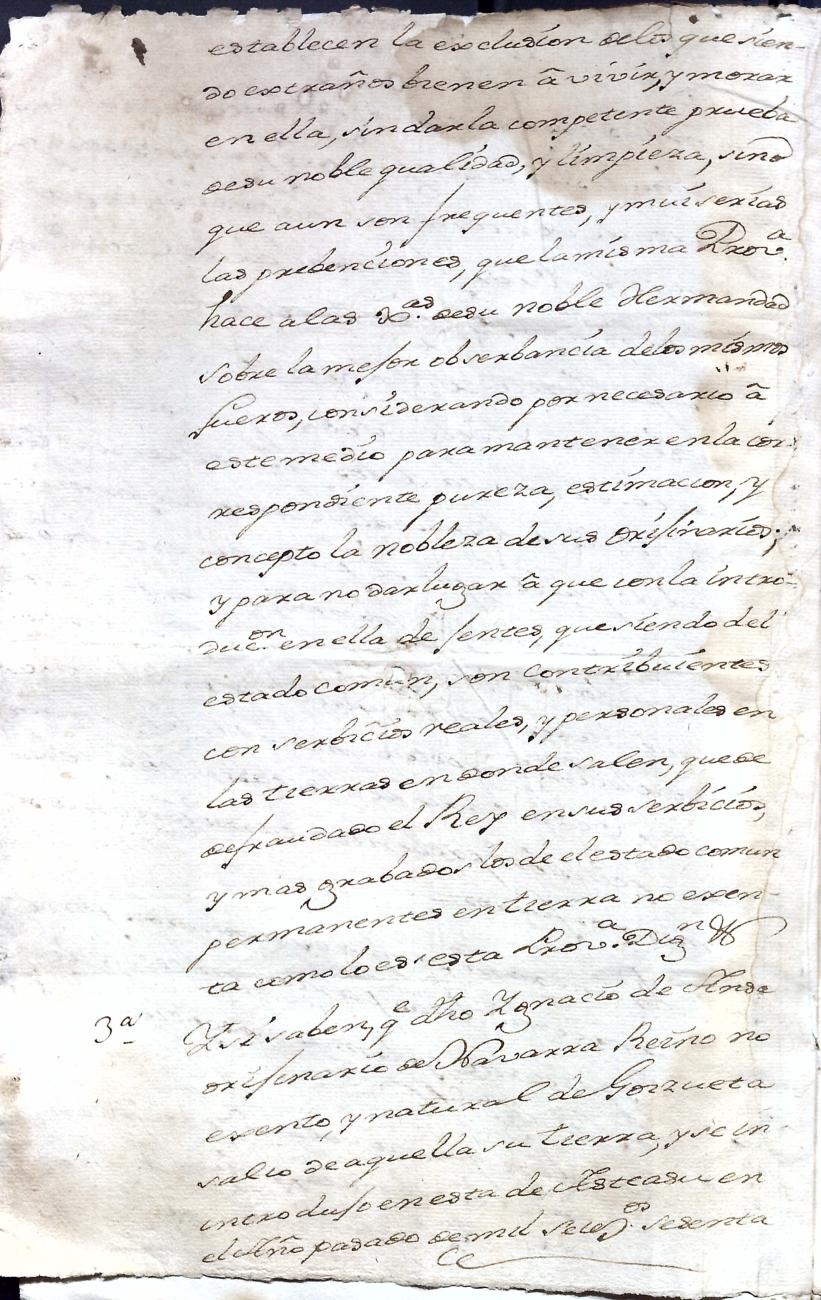 establecen la exclusion delos que sien-
do extraños bienen â vivir, y morar
en ella, sin dar la competente prueba
desu noble qualidad, y limpieza, sino
que aun son frequentes, y mui serias
las prebenciones, que la misma Prov.ª
hace a las Rp.as desu noble Hermandad
sobre la mejor obserbancia delos mismos
fueros, considerando por necesario â
este medio para mantener en la cor-
respondiente pureza, estimacion, y
concepto la nobleza de sus orijinarios;
y para no dar lugar â que con la intro-
duc.on en ella de jentes, que siendo del
estado comun, son contribuientes
con serbicios reales, y personales en
las tierras en donde salen, quede
defraudado el Rey en sus serbicios,
y mas grabados los de el estado comun
permanentes en tierra no exen-
ta como lo es esta Prov.ª Dign
3ª Y si saben, qe dho Ygnacio de
orijinario de Navarra Reino no
exento, y natural de Goizueta
salio de aquella su tierra, y se in-
introdujo en esta de Asteasu en
el Año pasado de mil setez.os sesenta